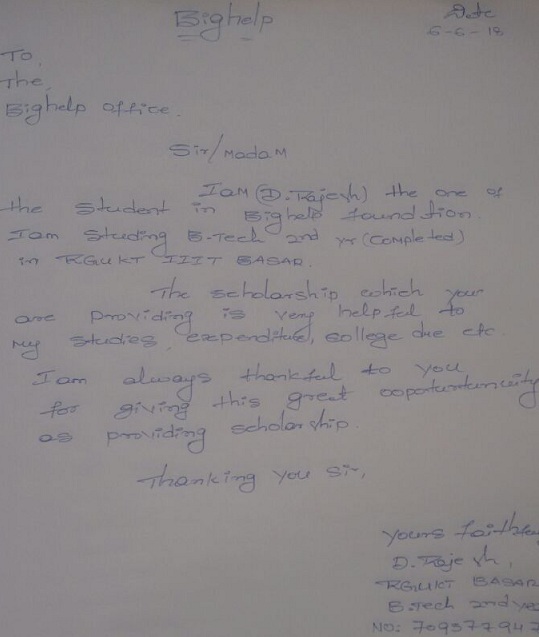 Bighelp
Date
5-6-18
To,
The,
Bighelp office.
Sir/Madam
I am (D. Rajesh) the one of
the student in Bighelp foundtion.
I am Studing B-Tech 2nd yr (Completed)
in RGUKT IIIT BASAR.
The scholarship which your
are providing is very helpful to
My studies, expenditure, college due etc.
I am always thankful to you
for giving this great
as providing scholarship.
Thanking you Sir,
yours
D. Rajesh,
RGUKT BASAR
B.Tech 2nd
NO: